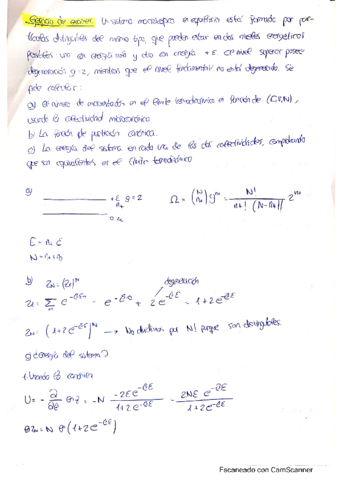 Ejercicio de examen. Un sistema monolítico en equilibrio está formado por par-
tículas distinguibles del mismo tipo, que pueden estar en dos niveles energéticos
posibles uno con energía nula y otro con energía +E. El nivel superior posee
degeneración g=2, mientras que el nivel fundamental no está degenerado. Se
pide calcular:
a) El número de microestados en el límite termodinámico en función de (E,N),
usando la colectividad microcanónica.
b) La función de partición canónica.
c) La energía del sistema en cada una de las dos colectividades, comprobando
que son equivalentes en el límite termodinámico
a)
+E g=2
n₊
0 n₀
Ω = (N n₊) g^n₊ = N! / n₊! (N-n₊)! 2^n₊
E = n₊ E
N = n₀+n₊
b) Z_N = (Z₁)^N
degeneración
Z₁ = Σ e^-βEn = e^-β·0 + 2e^-βE = 1+2e^-βE
Z_N = (1+2e^-βE)^N → No dividimos por N! porque son distinguibles.
c) ¿Energía del sistema?
1. Usando la canónica
U = - ∂/∂β ln Z = -N -2Ee^-βE / 1+2e^-βE = 2NE e^-βE / 1+2e^-βE
ln Z_N = N ln(1+2e^-βE)
Escaneado con CamScanner